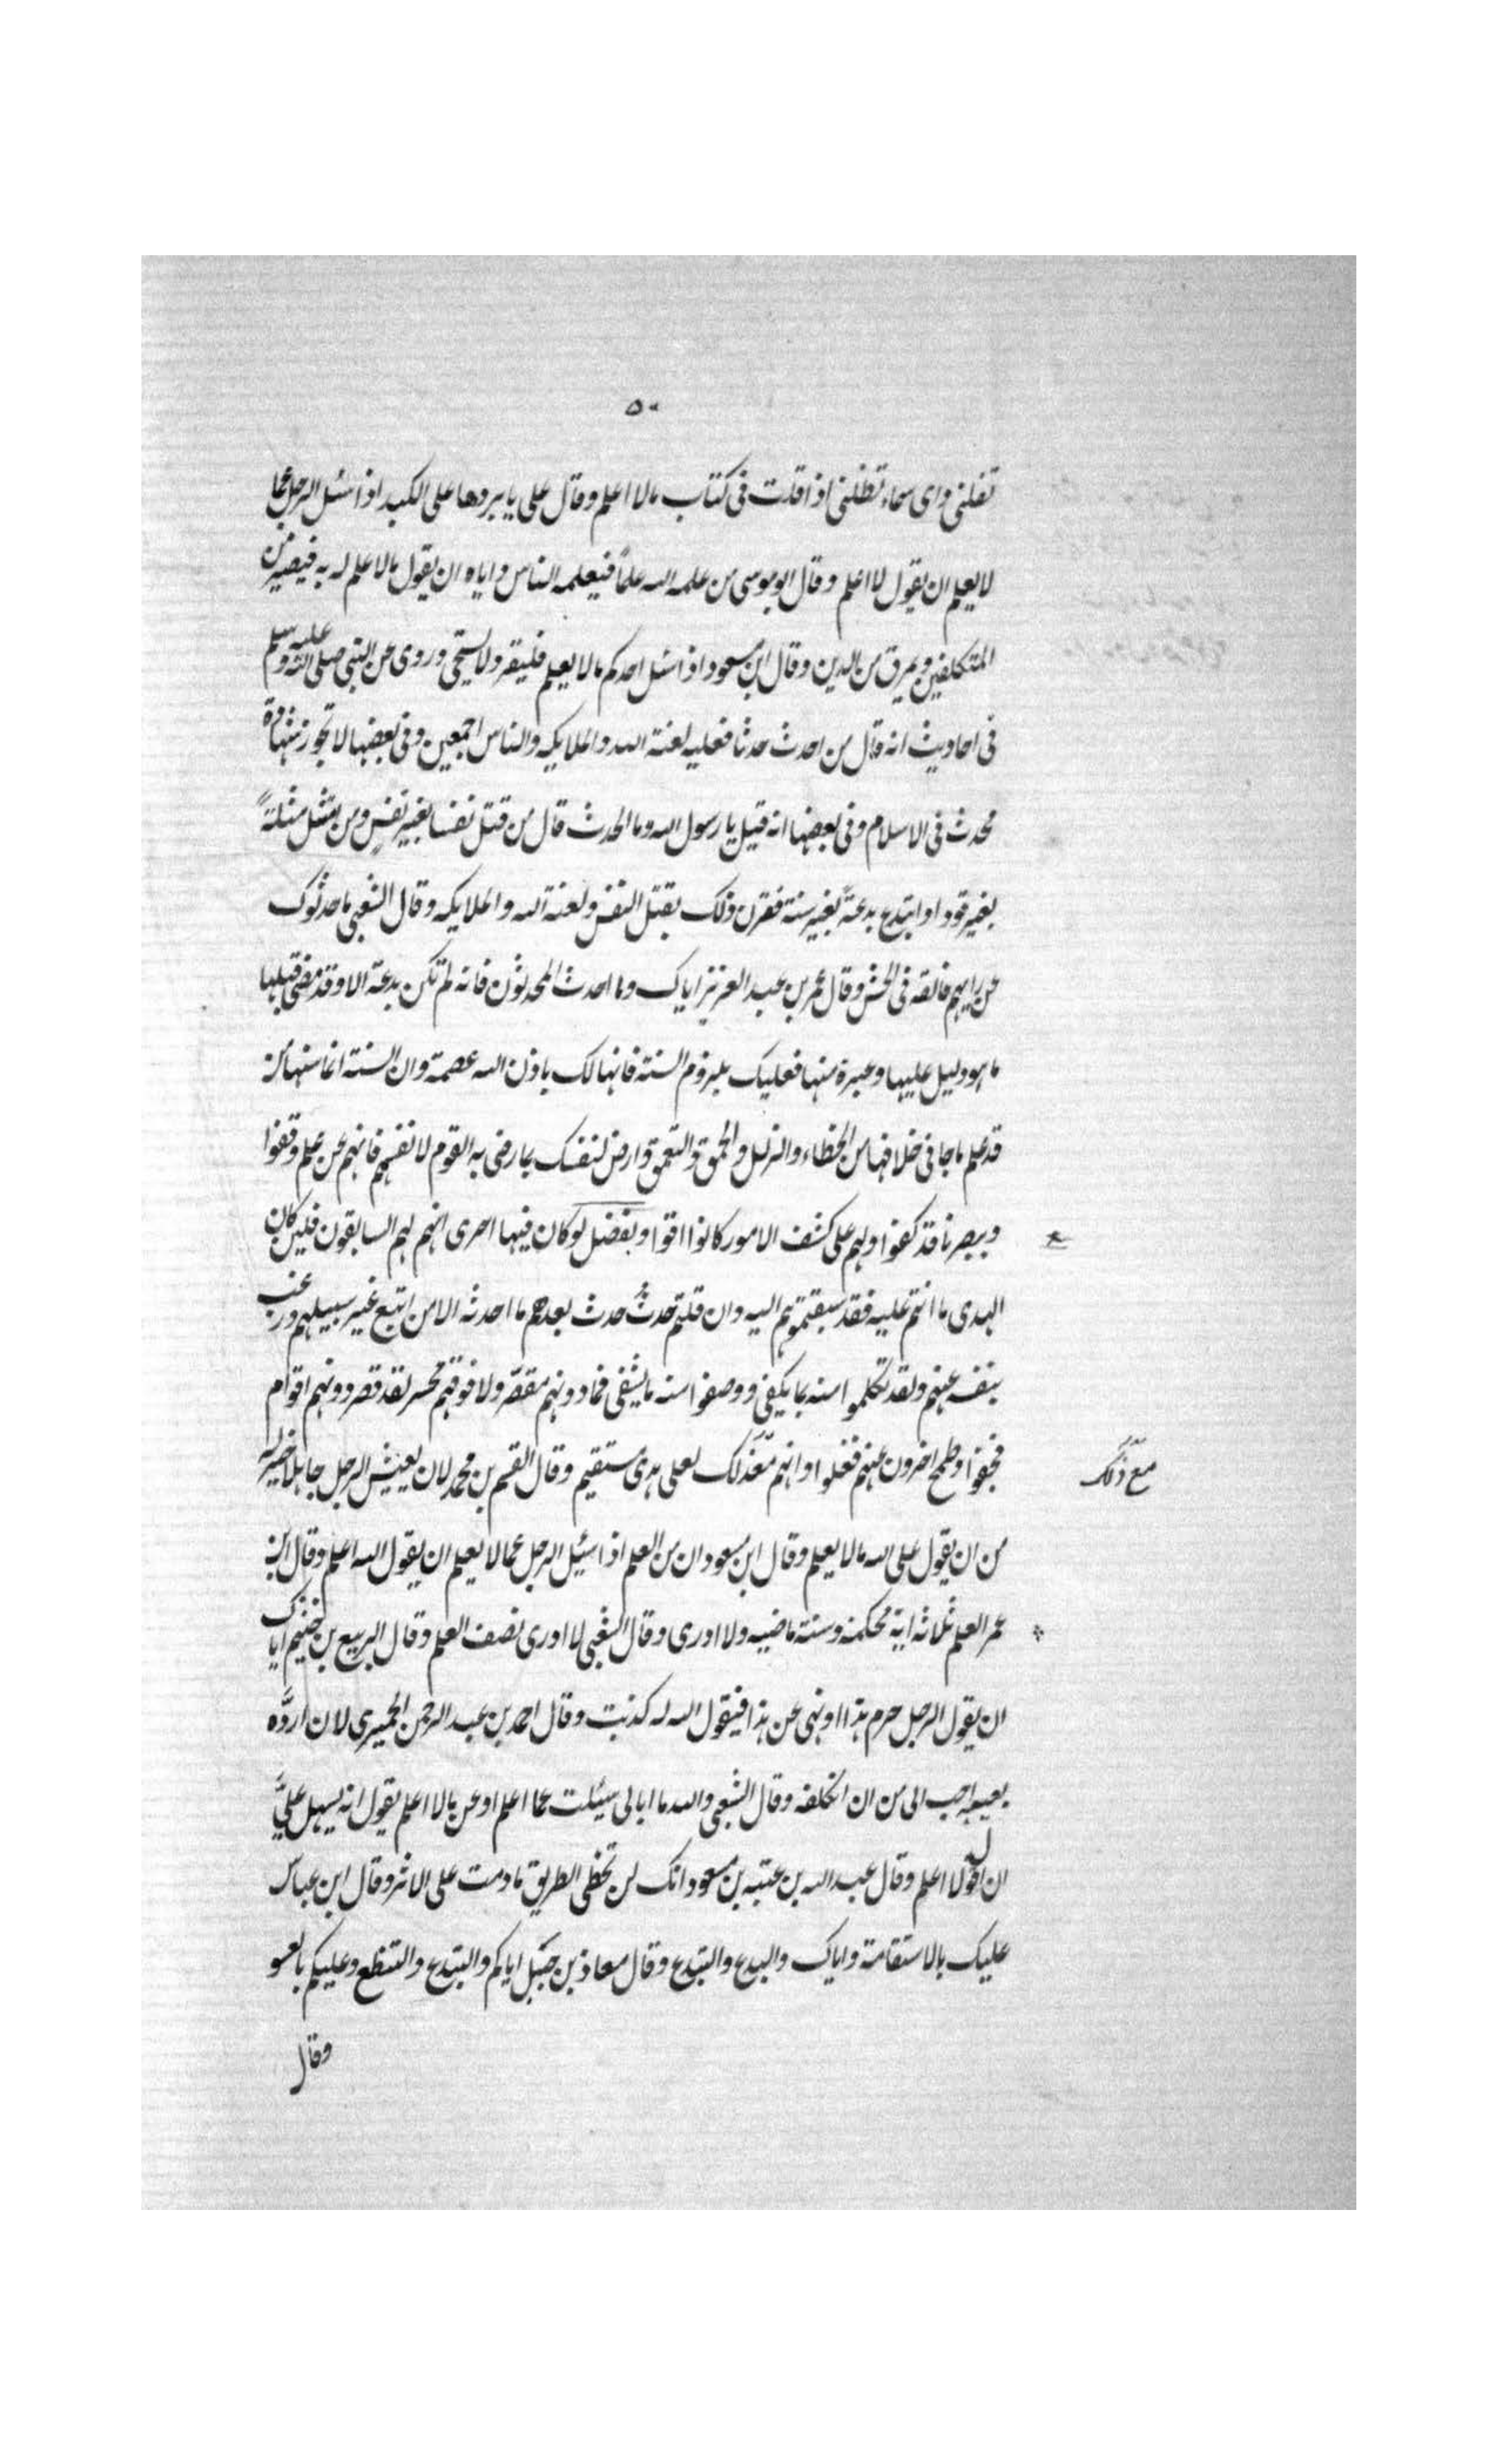 ٥٠
تقلنى واى سماء تظلنى اذا قلت فى كتاب مالا اعلم وقال على يا بردها على الكبد اذا سئل الرجل عما
لا يعلم ان يقول لا اعلم وقال ابو موسى من علمه الله علماً فليعلمه الناس واياه ان يقول مالا علم له به فيصير من
المتكلفين ويمرق من الدين وقال ابن مسعود اذا سئل احدكم مالا يعلم فليقر ولا يستحى وروى عن النبى صلى الله عليه وسلم
فى احاديث انه قال من احدث حدثا فعليه لعنة الله والملايكه والناس اجمعين وفى بعضها لا تجوز شهادة
محدث فى الاسلام وفى بعضها انه قيل يا رسول الله وما الحدث قال من قتل نفسا بغير نفس ومن يمثل مثلةً
بغير قود او ابتدع بدعةً بغير سنة فقرن ذلك بقتل النفس ولعنة الله والملايكه وقال الشعبى ما حدثوك
عن رايهم فالقه فى الحش وقال عمر بن عبد العزيز اياك وما احدث المحدثون فانه لم تكن بدعة الا وقد مضى قبلها
ما هو دليل عليها وعبرة منها فعليك بلزوم السنة فانها لك باذن الله عصمة وان السنة انما سنها من
قد علم ما جا فى خلافها من الخطاء والزلل والحمق والتعمق وارض لنفسك بما رضى به القوم لانفسهم فانهم عن علم وقفوا
وببصر نافذ كفوا ولهم على كشف الامور كانوا اقوا وبفضل لو كان فيها احرى انهم لهم السابقون فلين كان
الهدى ما انتم عليه فقد سبقتموهم اليه وان قلتم حدثٌ حدث بعدهم ما احدثه الا من اتبع غير سبيلهم ورغب
بنفسه عنهم ولقد تكلموا منه بما يكفى ووصفوا منه ما يشفى فما دونهم مقصّر ولا فوقهم محسر لقد قصر دونهم اقوام
فجفوا وطمح اخرون عنهم فغلوا وانهم مّعذلك لعلى هدى مستقيم وقال القسم بن محمد لان يعيش الرجل جاهلا خير له
مع ذلك
من ان يقول على الله مالا يعلم وقال ابن مسعود ان من العلم اذا سئيل الرجل عما لا يعلم ان يقول الله اعلم وقال ابن
عمر العلم ثلاثه اية محكمة وسنة ماضيه ولا ادرى وقال الشعبى لا ادرى نصف العلم وقال الربيع بن خثيم اياك
ان يقول الرجل حرم هذا او نهى عن هذا فيقول الله له كذبت وقال احمد بن عبد الرحمن الحميرى لان اردَّه
بعيبه احب الى من ان اتكلفه وقال الشعبى والله ما ابالى سيئلت عما اعلم او عن مالا اعلم يقول انه يسهل علىَّ
ان اقول لا اعلم وقال عبد الله بن عتبه بن مسعود انك لن تخطى الطريق ما دمت على الاثر وقال ابن عباس
عليك بالاستقامة واياك والبدع والتبدع وقال معاذ بن جبل اياكم والتبدع والتنطع وعليكم بالعسو
وقال